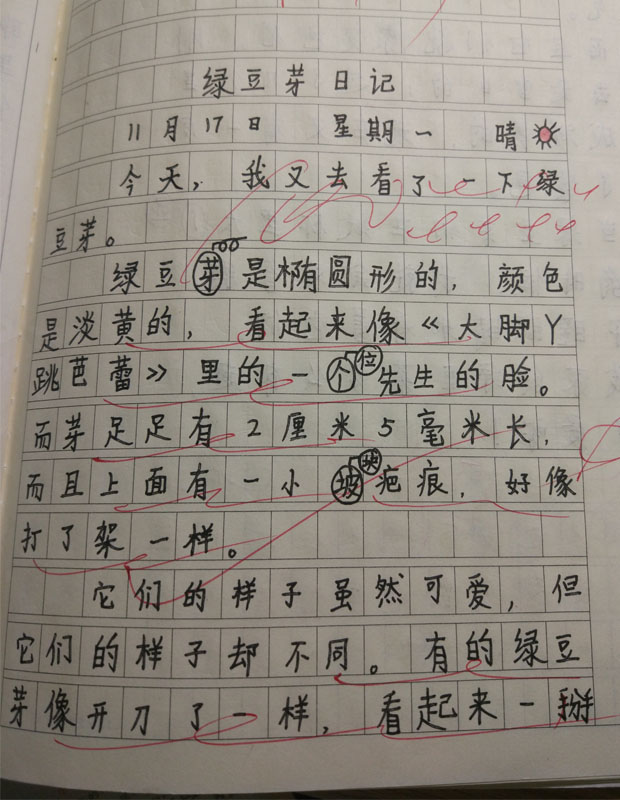 绿豆芽日记
11月17日 星期一 晴
今天，我又去看了一下绿
豆芽。
绿豆芽是椭圆形的，颜色
是淡黄的，看起来像《大脚丫
跳芭蕾》里的一位先生的脸。
而芽足足有2厘米5毫米长，
而且上面有一小块疤痕，好像
打了架一样。
它们的样子虽然可爱，但
它们的样子却不同。有的绿豆
芽像开刀了一样，看起来一掰